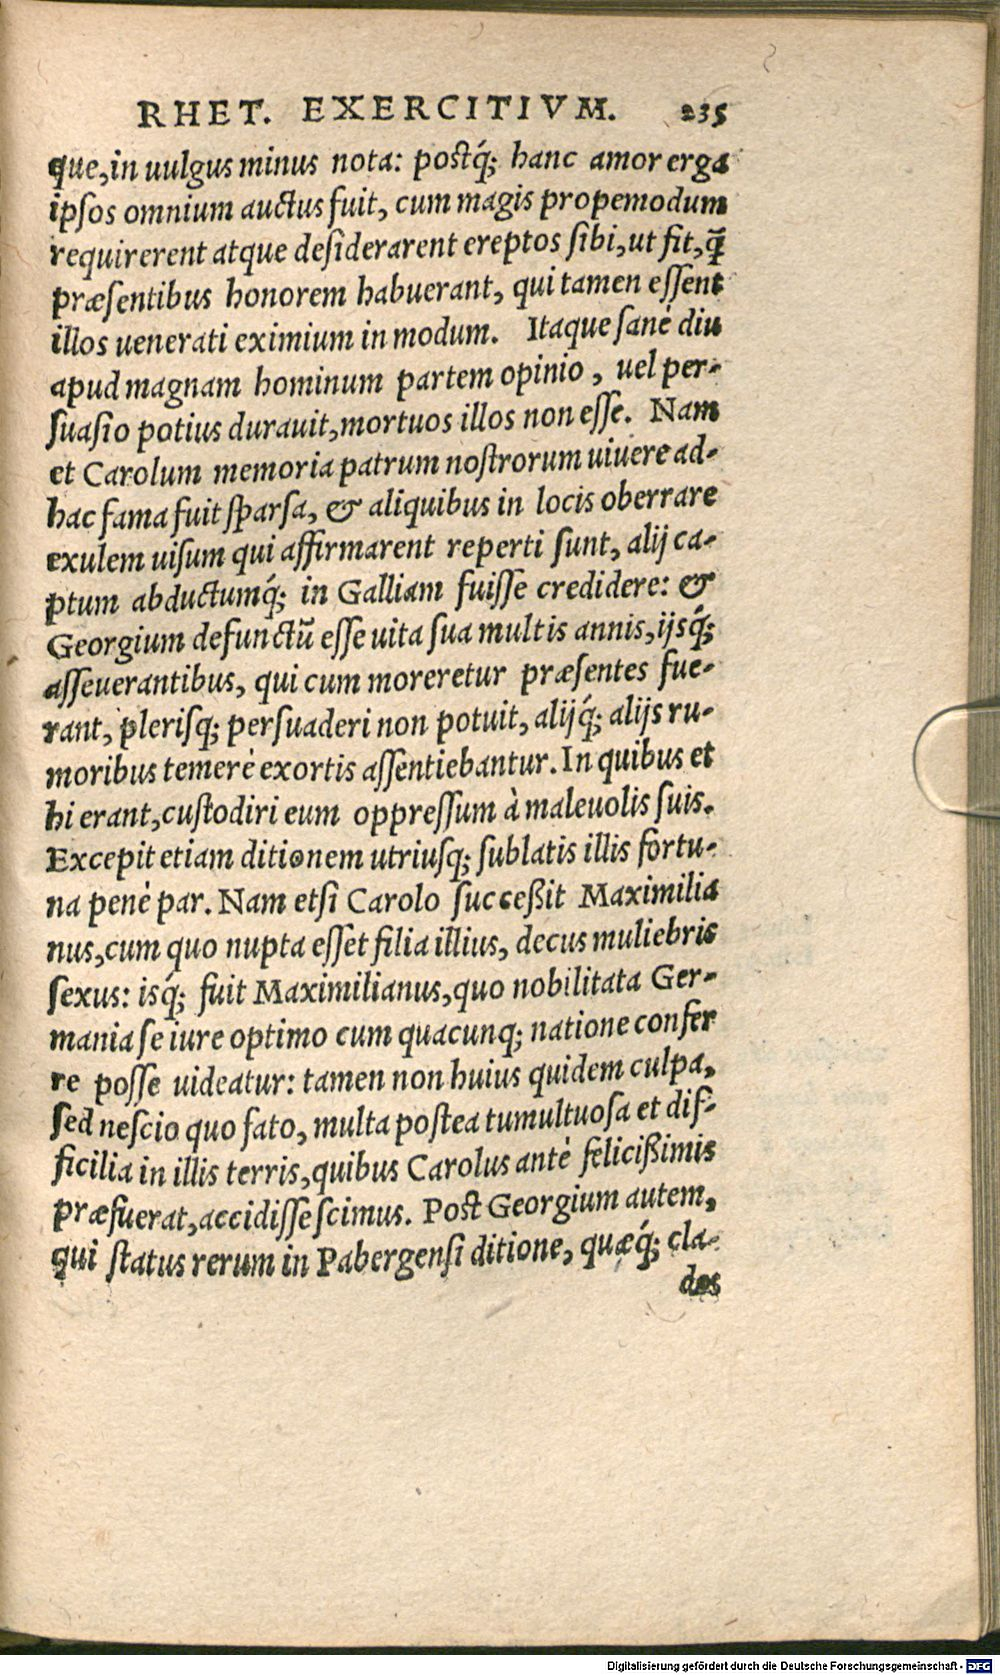 RHET. EXERCITIVM. 235
que, in uulgus minus nota: postq́; hanc amor erga
ipsos omnium auctus fuit, cum magis propemodum
requirerent atque desiderarent ereptos sibi, ut fit, q̃
præsentibus honorem habuerant, qui tamen essent
illos uenerati eximium in modum. Itaque sanè diu
apud magnam hominum partem opinio, uel per-
suasio potius durauit, mortuos illos non esse. Nam
et Carolum memoria patrum nostrorum uiuere ad-
hac fama fuit sparsa, & aliquibus in locis oberrare
exulem uisum qui affirmarent reperti sunt, alij ca-
ptum abductumq́; in Galliam fuisse credidere: &
Georgium defunctũ esse uita sua multis annis, ijsq́;
asseuerantibus, qui cum moreretur præsentes fue-
rant, plerisq; persuaderi non potuit, alijq́; alijs ru-
moribus temerè exortis assentiebantur. In quibus et
hi erant, custodiri eum oppressum à maleuolis suis.
Excepit etiam ditionem utriusq; sublatis illis fortu-
na penè par. Nam etsi Carolo succeßit Maximilia
nus, cum quo nupta esset filia illius, decus muliebris
sexus: isq́; fuit Maximilianus, quo nobilitata Ger-
mania se iure optimo cum quacunq; natione confer
re posse uideatur: tamen non huius quidem culpa,
sed nescio quo fato, multa postea tumultuosa et dif-
ficilia in illis terris, quibus Carolus antè felicißimis
præfuerat, accidisse scimus. Post Georgium autem,
qui status rerum in Pabergensi ditione, quæq́; cla-
des
Digitalisierung gefördert durch die Deutsche Forschungsgemeinschaft - DFG